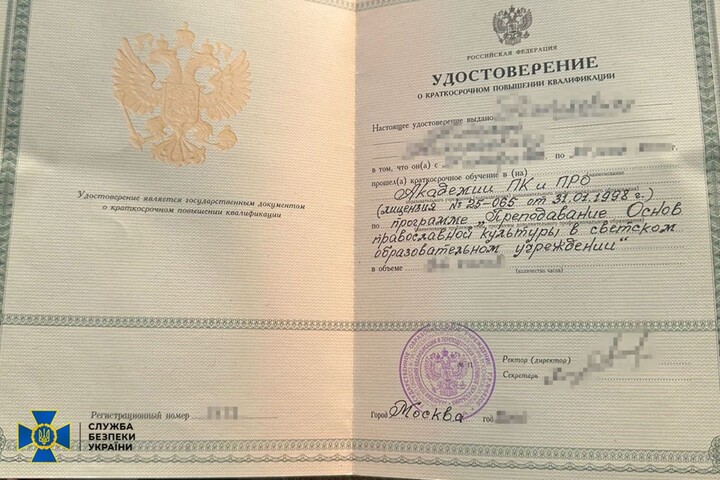 Удостоверение является государственным документом
о краткосрочном повышении квалификации
Регистрационный номер
СЛУЖБА
БЕЗПЕКИ
УКРАЇНИ
РОССИЙСКАЯ ФЕДЕРАЦИЯ
УДОСТОВЕРЕНИЕ
О КРАТКОСРОЧНОМ ПОВЫШЕНИИ КВАЛИФИКАЦИИ
Настоящее удостоверение выдано
в том, что он(а) с по г.
прошел(а) краткосрочное обучение в (на)
Академии ПК и ПРО
(лицензия № 25-065 от 31.01.1998 г.)
по программе „Преподавание Основ
православной культуры в светском
образовательном учреждении“
в объеме
(количество часов)
М.П.
Ректор (директор)
Секретарь
Город Москва год